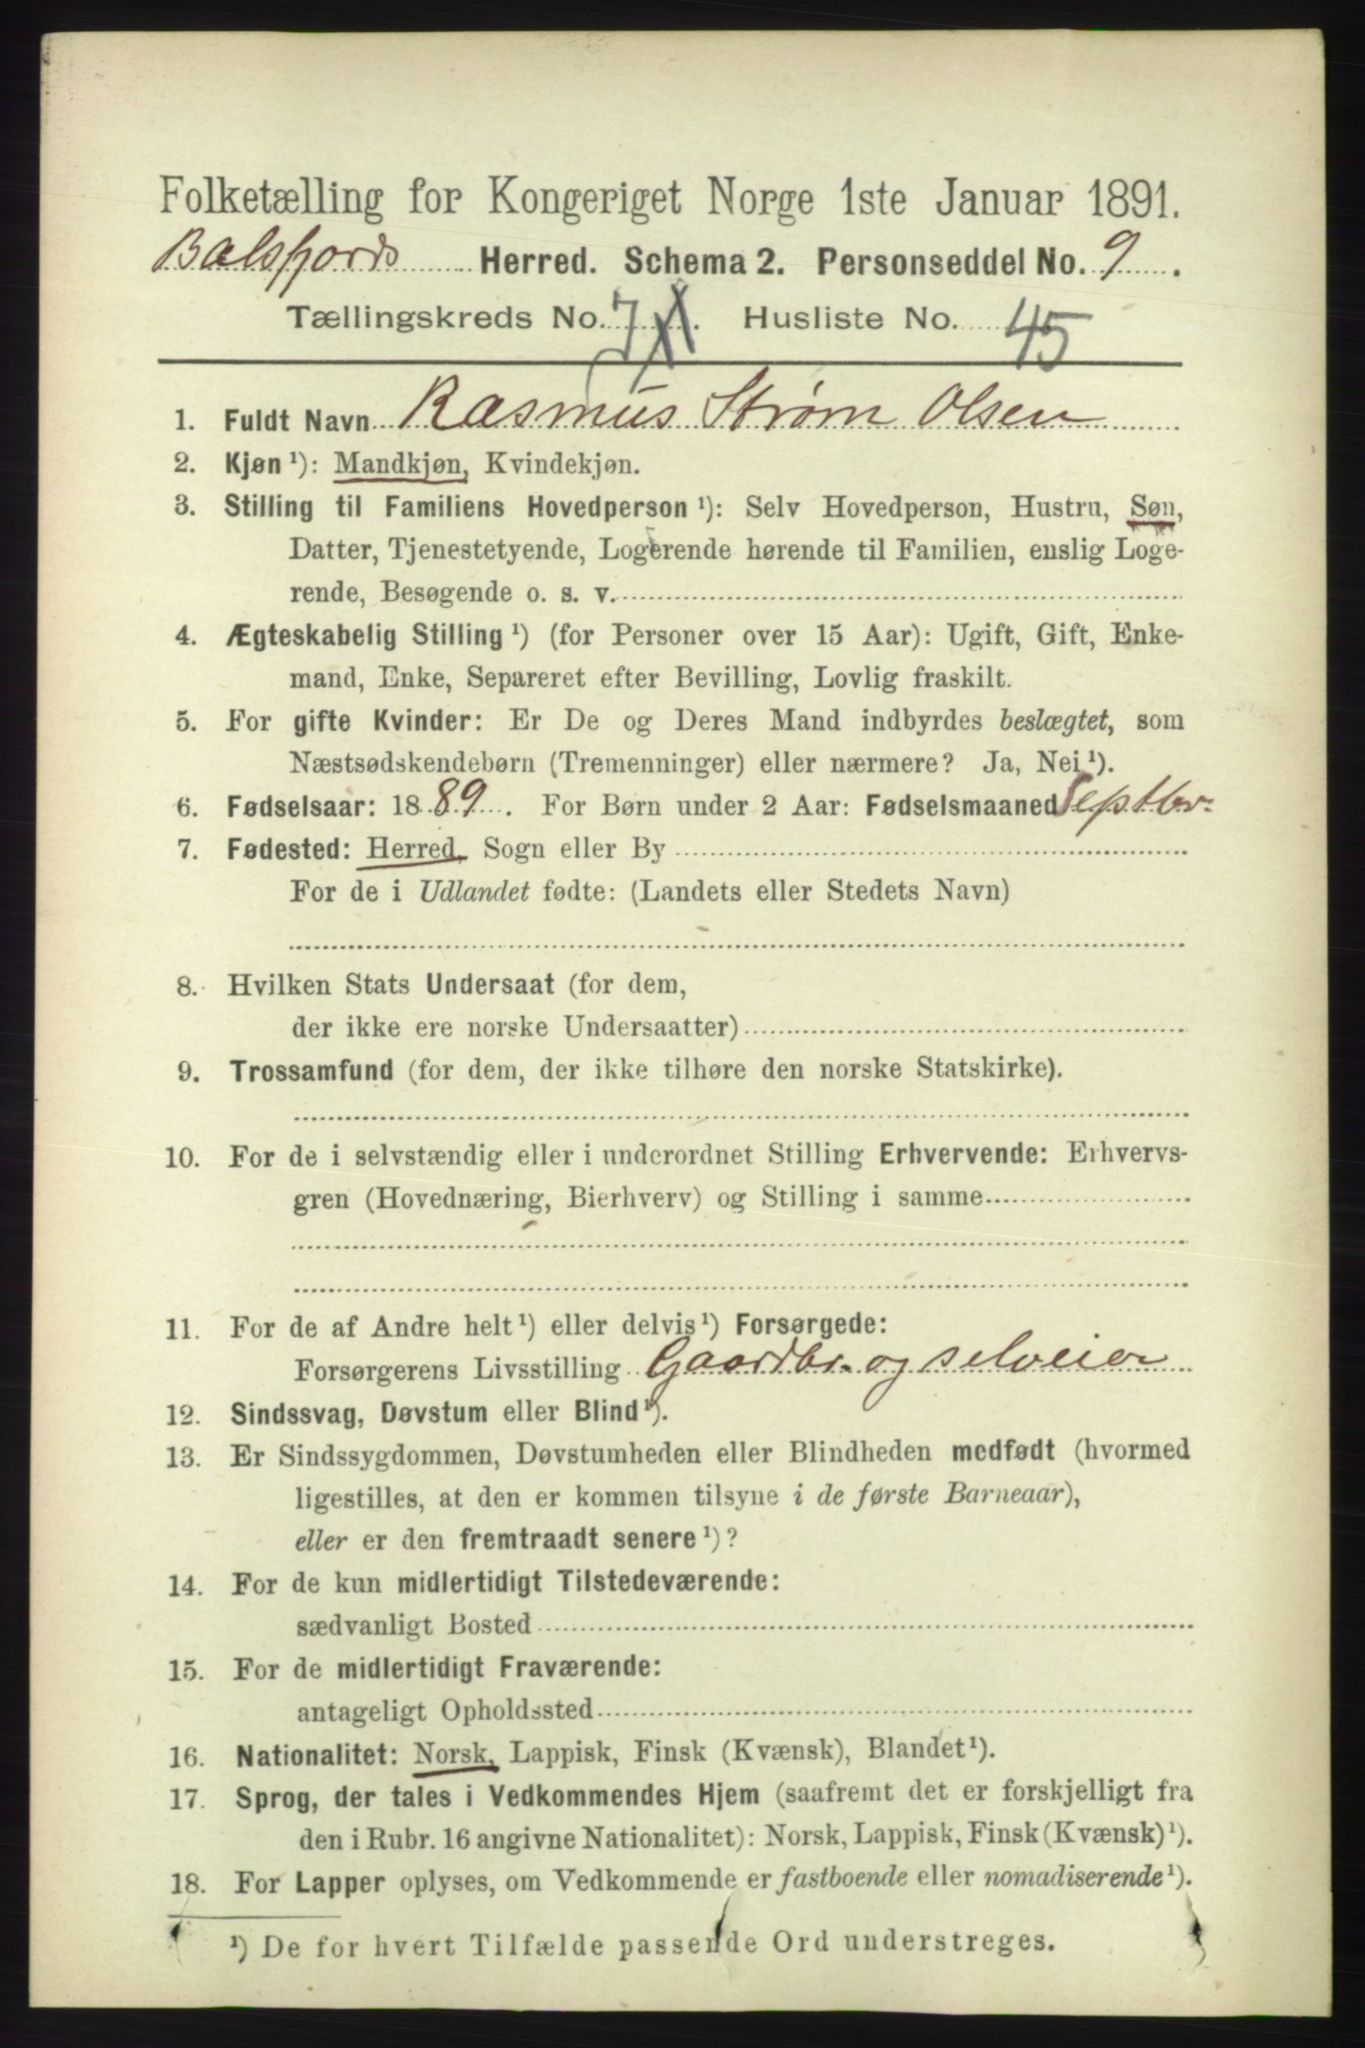 Folketælling for Kongeriget Norge 1ste Januar 1891.
Balsfjords Herred. Schema 2. Personseddel No. 9.
Tællingskreds No. 7. Husliste No. 45
1. Fuldt Navn Rasmus Strøm Olsen
2. Kjøn¹): Mandkjøn, Kvindekjøn.
3. Stilling til Familiens Hovedperson¹): Selv Hovedperson, Hustru, Søn,
Datter, Tjenestetyende, Logerende hørende til Familien, enslig Loge-
rende, Besøgende o. s. v.
4. Ægteskabelig Stilling¹) (for Personer over 15 Aar): Ugift, Gift, Enke-
mand, Enke, Separeret efter Bevilling, Lovlig fraskilt.
5. For gifte Kvinder: Er De og Deres Mand indbyrdes beslægtet, som
Næstsødskendebørn (Tremenninger) eller nærmere? Ja, Nei¹).
6. Fødselsaar: 1889. For Børn under 2 Aar: Fødselsmaaned Septbr.
7. Fødested: Herred, Sogn eller By
For de i Udlandet fødte: (Landets eller Stedets Navn)
8. Hvilken Stats Undersaat (for dem,
der ikke ere norske Undersaatter)
9. Trossamfund (for dem, der ikke tilhøre den norske Statskirke).
10. For de i selvstændig eller i underordnet Stilling Erhvervende: Erhvervs-
gren (Hovednæring, Bierhverv) og Stilling i samme
11. For de af Andre helt¹) eller delvis¹) Forsørgede:
Forsørgerens Livsstilling Gaardbr. og selveier
12. Sindssvag, Døvstum eller Blind¹).
13. Er Sindssygdommen, Døvstumheden eller Blindheden medfødt (hvormed
ligestilles, at den er kommen tilsyne i de første Barneaar),
eller er den fremtraadt senere¹)?
14. For de kun midlertidigt Tilstedeværende:
sædvanligt Bosted
15. For de midlertidigt Fraværende:
antageligt Opholdssted
16. Nationalitet: Norsk, Lappisk, Finsk (Kvænsk), Blandet¹).
17. Sprog, der tales i Vedkommendes Hjem (saafremt det er forskjelligt fra
den i Rubr. 16 angivne Nationalitet): Norsk, Lappisk, Finsk (Kvænsk)¹).
18. For Lapper oplyses, om Vedkommende er fastboende eller nomadiserende¹).
¹) De for hvert Tilfælde passende Ord understreges.